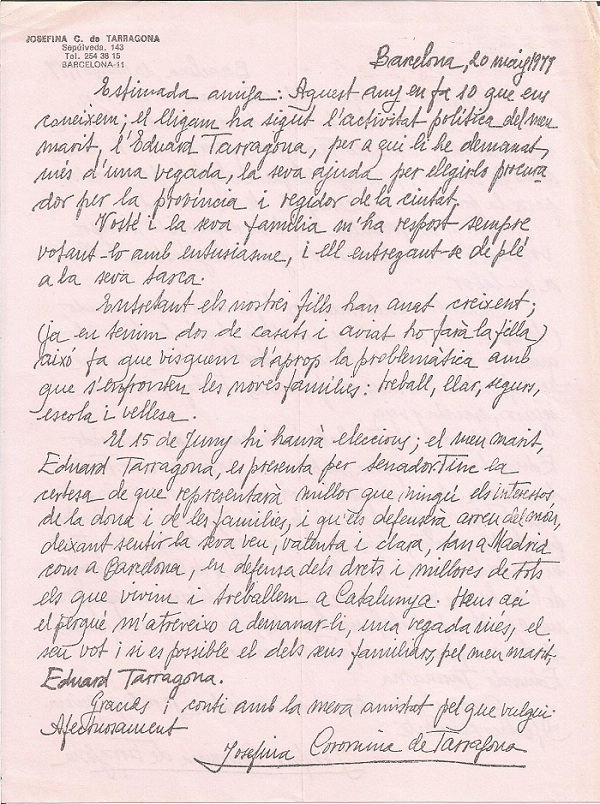 JOSEFINA C. de TARRAGONA
Sepúlveda, 143
Tel. 254 38 15
BARCELONA-11
Barcelona, 20 maig 1977
Estimada amiga: Aquest any en fa 10 que ens
coneixem; el lligam ha sigut l'activitat política del meu
marit, l'Eduard Tarragona, per a qui li he demanat,
més d'una vegada, la seva ajuda per elegirlo procura
dor per la província i regidor de la ciutat.
Vosté i la seva família m'ha respost sempre
votant-lo amb entusiasme, i ell entregant-se de plé
a la seva tasca.
Entretant els nostres fills han anat creixent;
(ja en tenim dos de casats i aviat ho farà la filla)
aixó fa que visquem d'aprop la problemàtica amb
que s'enfronten les noves famílies: treball, llar, segurs,
escola i vellesa.
El 15 de Juny hi haurà eleccions; el meu marit,
Eduard Tarragona, es presenta per senador. Tinc la
certesa de que representarà millor que ningú els interessos
de la dona i de les families, i qu'els defenserà arreu del món,
deixant sentir la seva veu, valenta i clara, tan a Madrid
com a Barcelona, en defensa dels drets i millores de tots
els que vivim i treballem a Catalunya. Heus ací
el perqué m'atreveixo a demanar-li, una vegada més, el
seu vot i si es possible el dels seus familiars, pel meu marit,
Eduard Tarragona.
Gracies i conti amb la meva amistat pel que vulgui
Afectuosament
Josefina Coromina de Tarragona